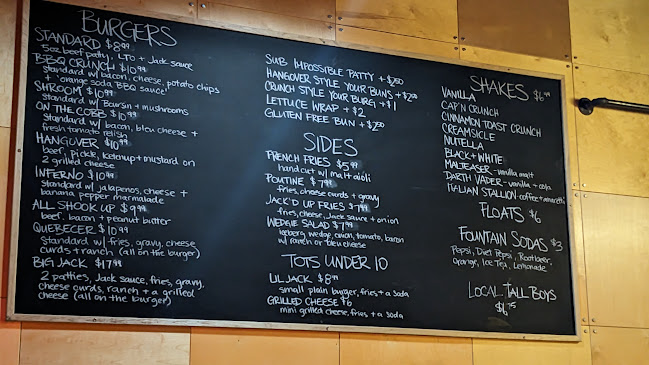 BURGERS
STANDARD $8.99
5oz beef patty, LTO + Jack sauce
BBQ CRUNCH $10.99
standard w/ bacon, cheese, potato chips
+ orange soda BBQ sauce!
SHROOM $10.99
standard w/ Boursin + mushrooms
ON THE COBB $10.99
standard w/ bacon, bleu cheese +
fresh tomato relish
HANGOVER $10.99
beef, pickle, ketchup + mustard on
2 grilled cheese
INFERNO $10.99
standard w/ jalapenos, cheese +
banana pepper marmalade
ALL SHOOK UP $9.99
beef, bacon + peanut butter
QUEBECER $10.99
standard w/ fries, gravy, cheese
curds + ranch (all on the burger)
BIG JACK $17.99
2 patties, Jack sauce, fries, gravy,
cheese curds, ranch + a grilled
cheese (all on the burger)
SUB IMPOSSIBLE PATTY + $2.50
HANGOVER STYLE YOUR BUNS + $2.50
CRUNCH STYLE YOUR BURG + $1
LETTUCE WRAP + $2
GLUTEN FREE BUN + $2.50
SIDES
FRENCH FRIES $5.99
hand cut w/ malt aioli
POUTINE $7.99
fries, cheese curds + gravy
JACK'D UP FRIES $7.99
fries, cheese, Jack sauce + onion
WEDGIE SALAD $7.99
iceberg wedge, onion, tomato, bacon
w/ ranch or bleu cheese
TOTS UNDER 10
LIL JACK $8.99
small plain burger, fries + a soda
GRILLED CHEESE $6
mini grilled cheese, fries + a soda
SHAKES $6.99
VANILLA
CAP'N CRUNCH
CINNAMON TOAST CRUNCH
CREAMSICLE
NUTELLA
BLACK + WHITE
MALTEASER - vanilla malt
DARTH VADER - vanilla + cola
ITALIAN STALLION - coffee + amaretti
FLOATS $6
FOUNTAIN SODAS $3
Pepsi, Diet Pepsi, Rootbeer,
Orange, Ice Tea, Lemonade
LOCAL TALL BOYS
$6.75